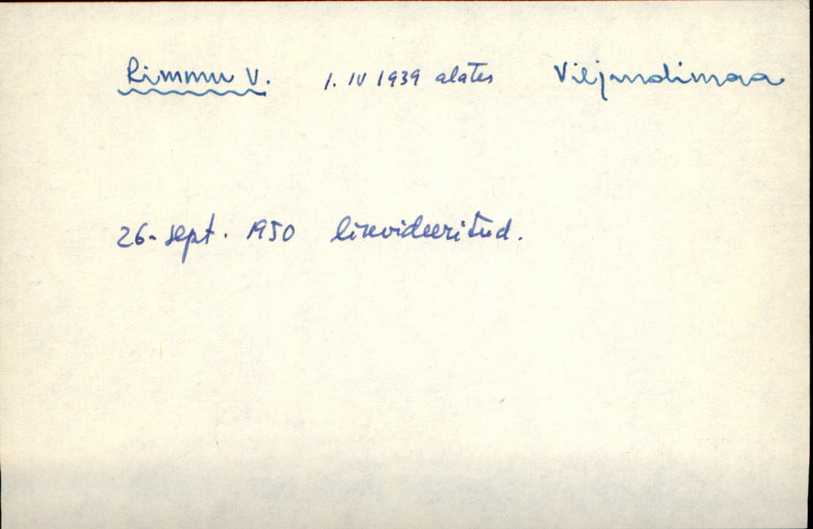 Rimmu V. 1. IV 1939 alates Viljandimaa
26. sept. 1950 likvideeritud.